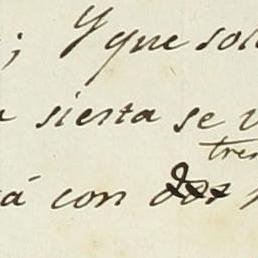 ; Y que sol
siesta se v
tres
á con dos